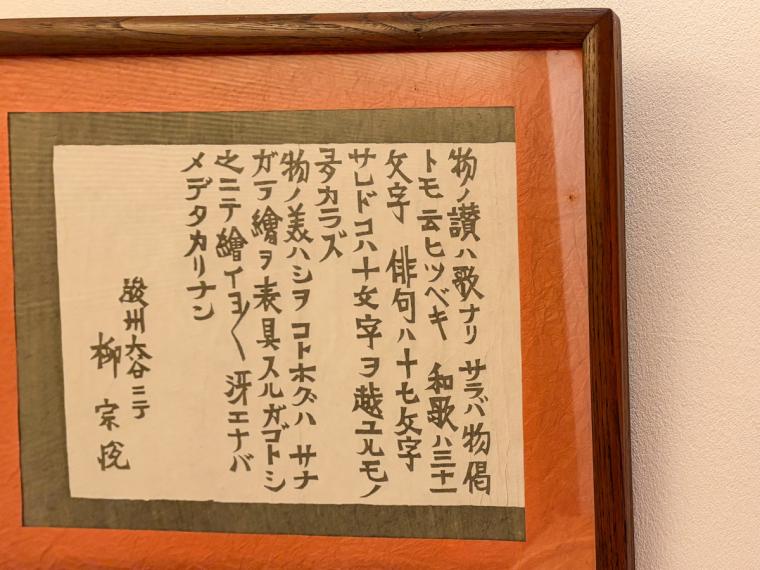 物ノ讃ハ歌ナリ サラバ物偈
トモ云ヒツベキ 和歌ハ三十一
文字 俳句ハ十七文字
サレドコハ十文字ヲ越ユルモノ
ヨタカラズ
物ノ美ハシヲ コトホグハ サナ
ガラ繪ヲ表具スルガゴトシ
之ニテ繪イヨ〳〵冴エナバ
メデタカリナン
駿州大谷ニテ
柳 宗悦